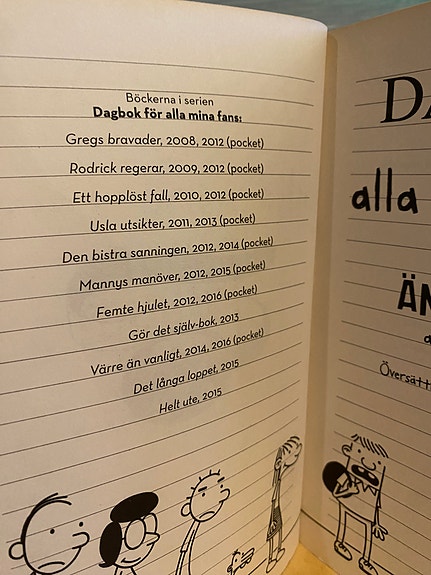 Böckerna i serien
Dagbok för alla mina fans:
Gregs bravader, 2008, 2012 (pocket)
Rodrick regerar, 2009, 2012 (pocket)
Ett hopplöst fall, 2010, 2012 (pocket)
Usla utsikter, 2011, 2013 (pocket)
Den bistra sanningen, 2012, 2014 (pocket)
Mannys manöver, 2012, 2015 (pocket)
Femte hjulet, 2012, 2016 (pocket)
Gör det själv-bok, 2013
Värre än vanligt, 2014, 2016 (pocket)
Det långa loppet, 2015
Helt ute, 2015
alla